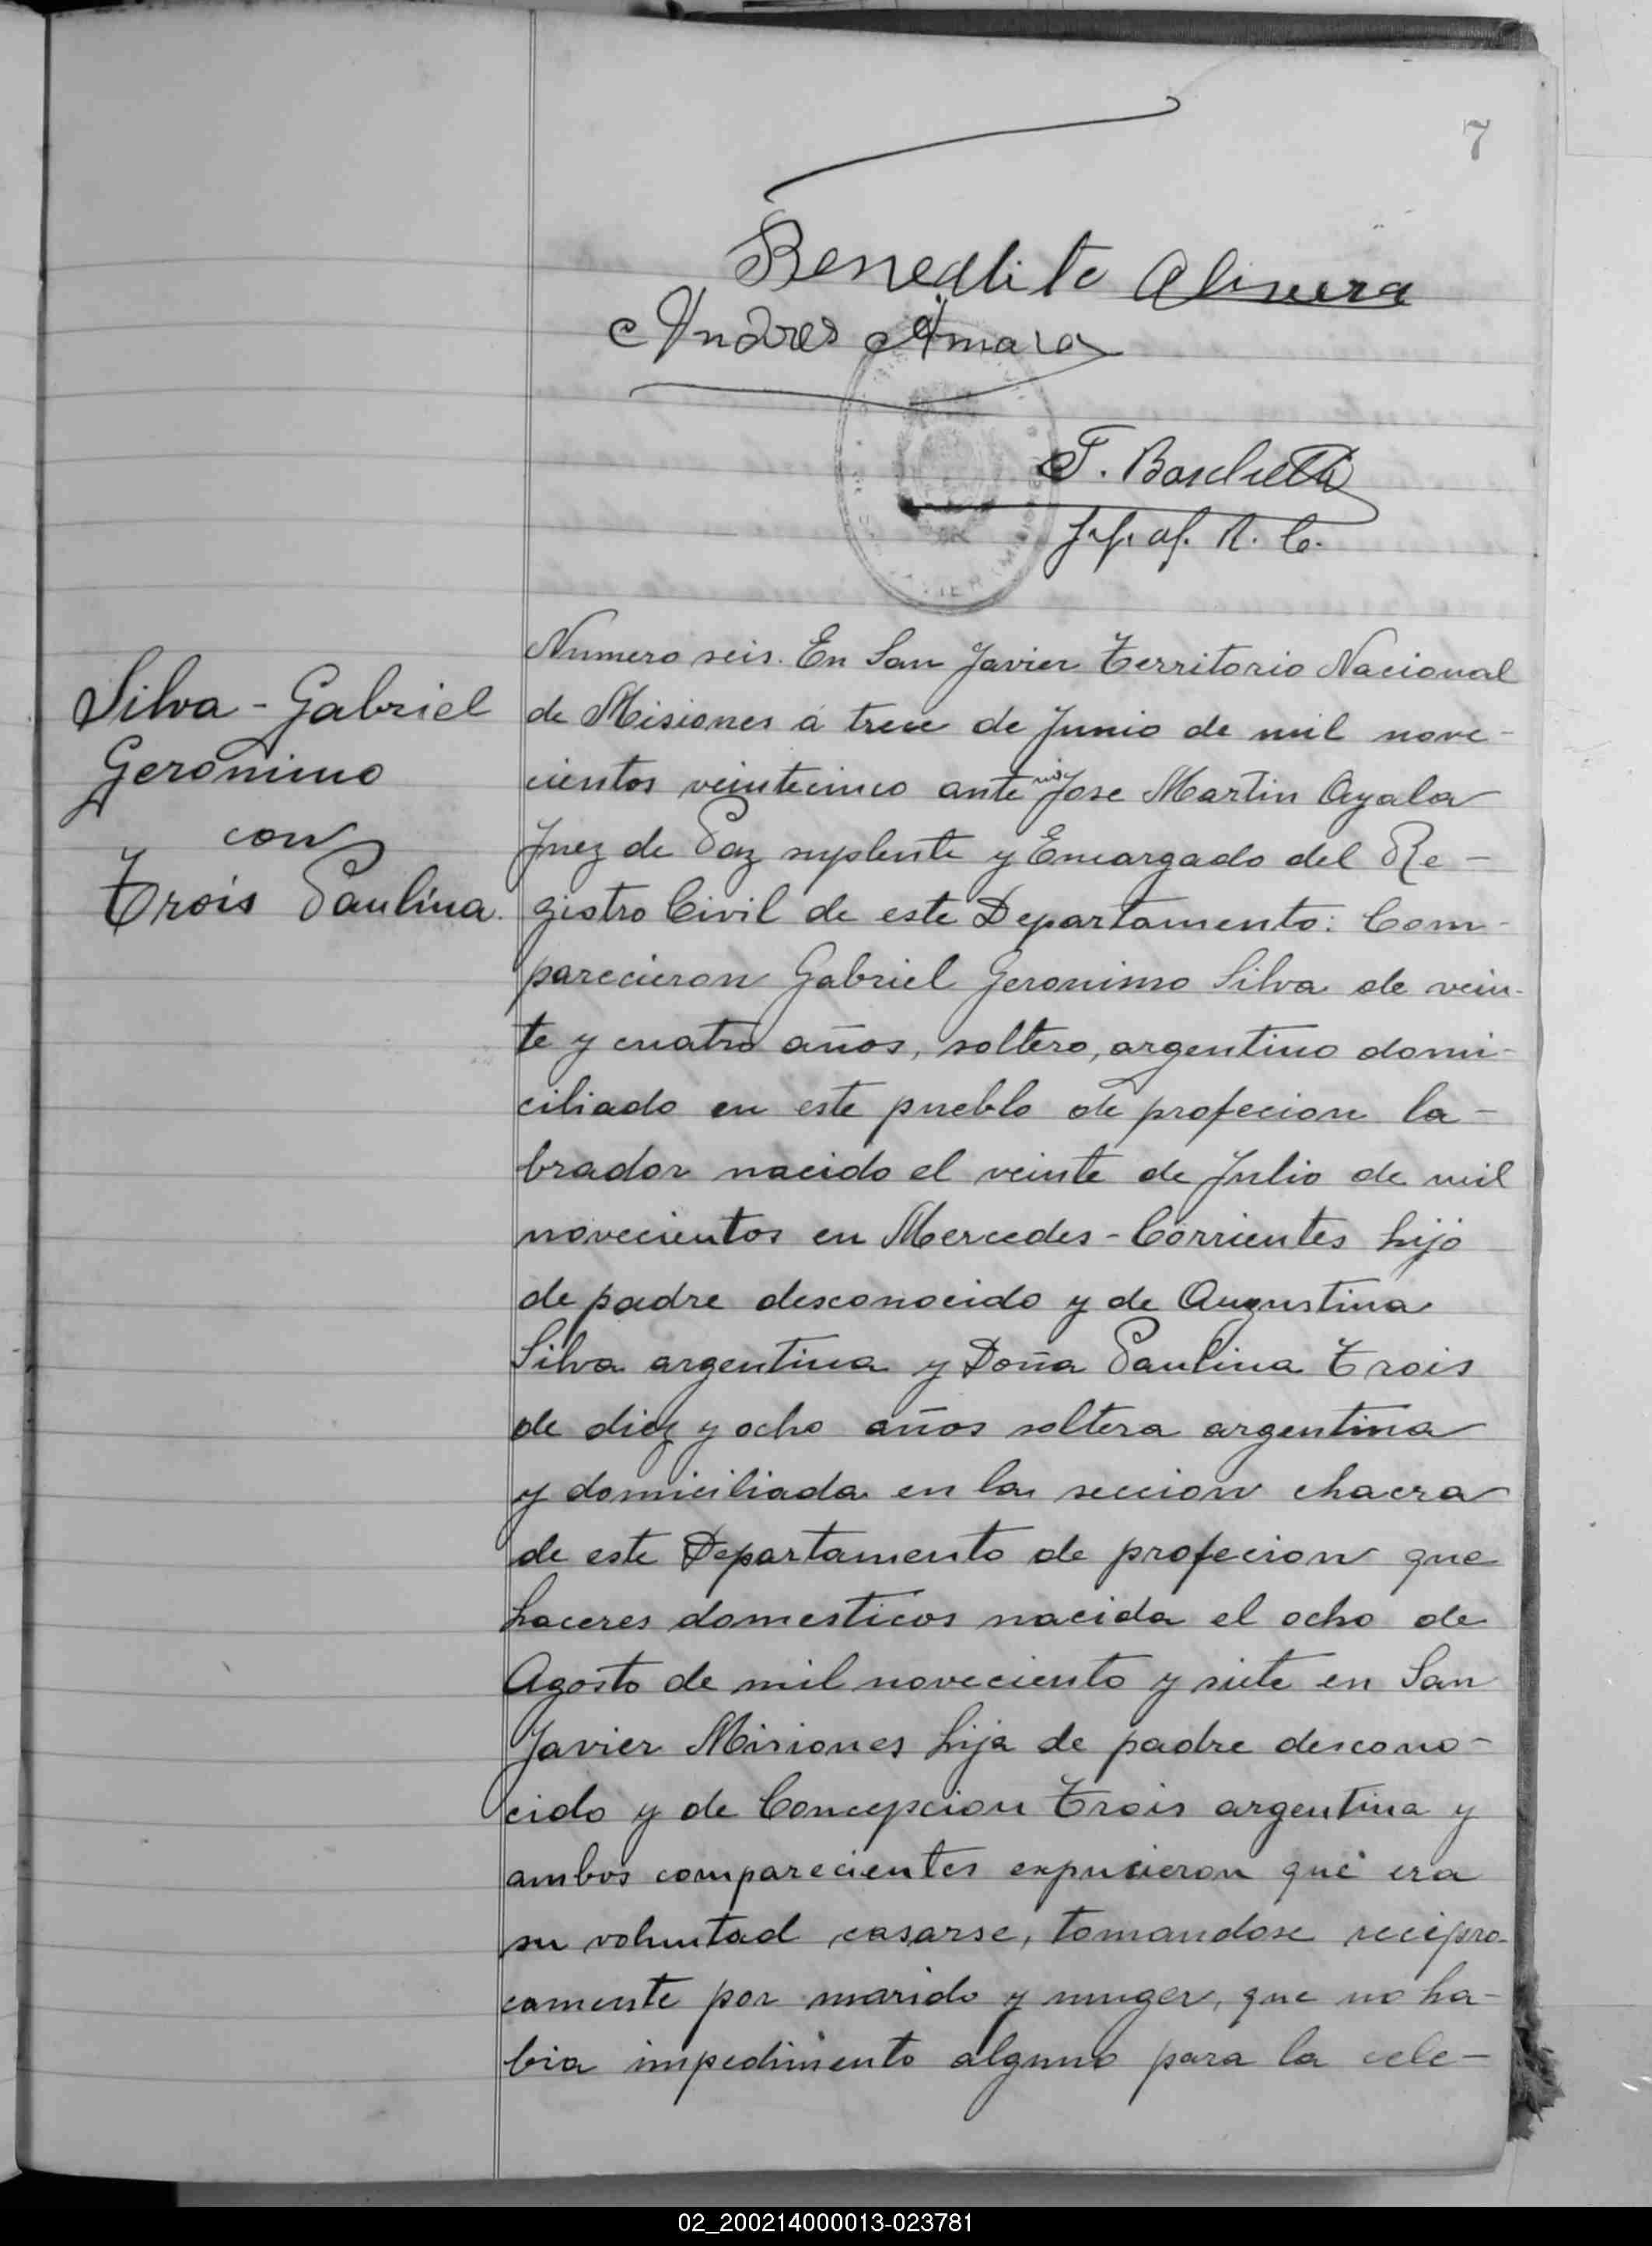 7
Benedito Olivera
Andres Amara
F. Boschetti
R. C.
Silva - Gabriel
Geronimo
con
Trois Paulina.
Numero seis. En San Javier Territorio Nacional
de Misiones á trece de Junio de mil nove-
cientos veintecinco ante mi Jose Martin Ayala
Juez de Paz suplente y Encargado del Re-
gistro Civil de este Departamento: Com-
parecieron Gabriel Geronimo Silva de vein-
te y cuatro años, soltero, argentino domi-
ciliado en este pueblo de profecion la-
brador nacido el veinte de Julio de mil
novecientos en Mercedes - Corrientes hijo
de padre desconocido y de Augustina
Silva argentina y Doña Paulina Trois
de diez y ocho años soltera argentina
y domiciliada en la seccion chacra
de este Departamento de profecion que
haceres domesticos nacida el ocho de
Agosto de mil noveciento y siete en San
Javier Misiones hija de padre descono-
cido y de Concepcion Trois argentina y
ambos comparecientes expusieron que era
su voluntad casarse, tomandose recipro-
camente por marido y muger, que no ha-
bia impedimento alguno para la cele-
02_200214000013-023781